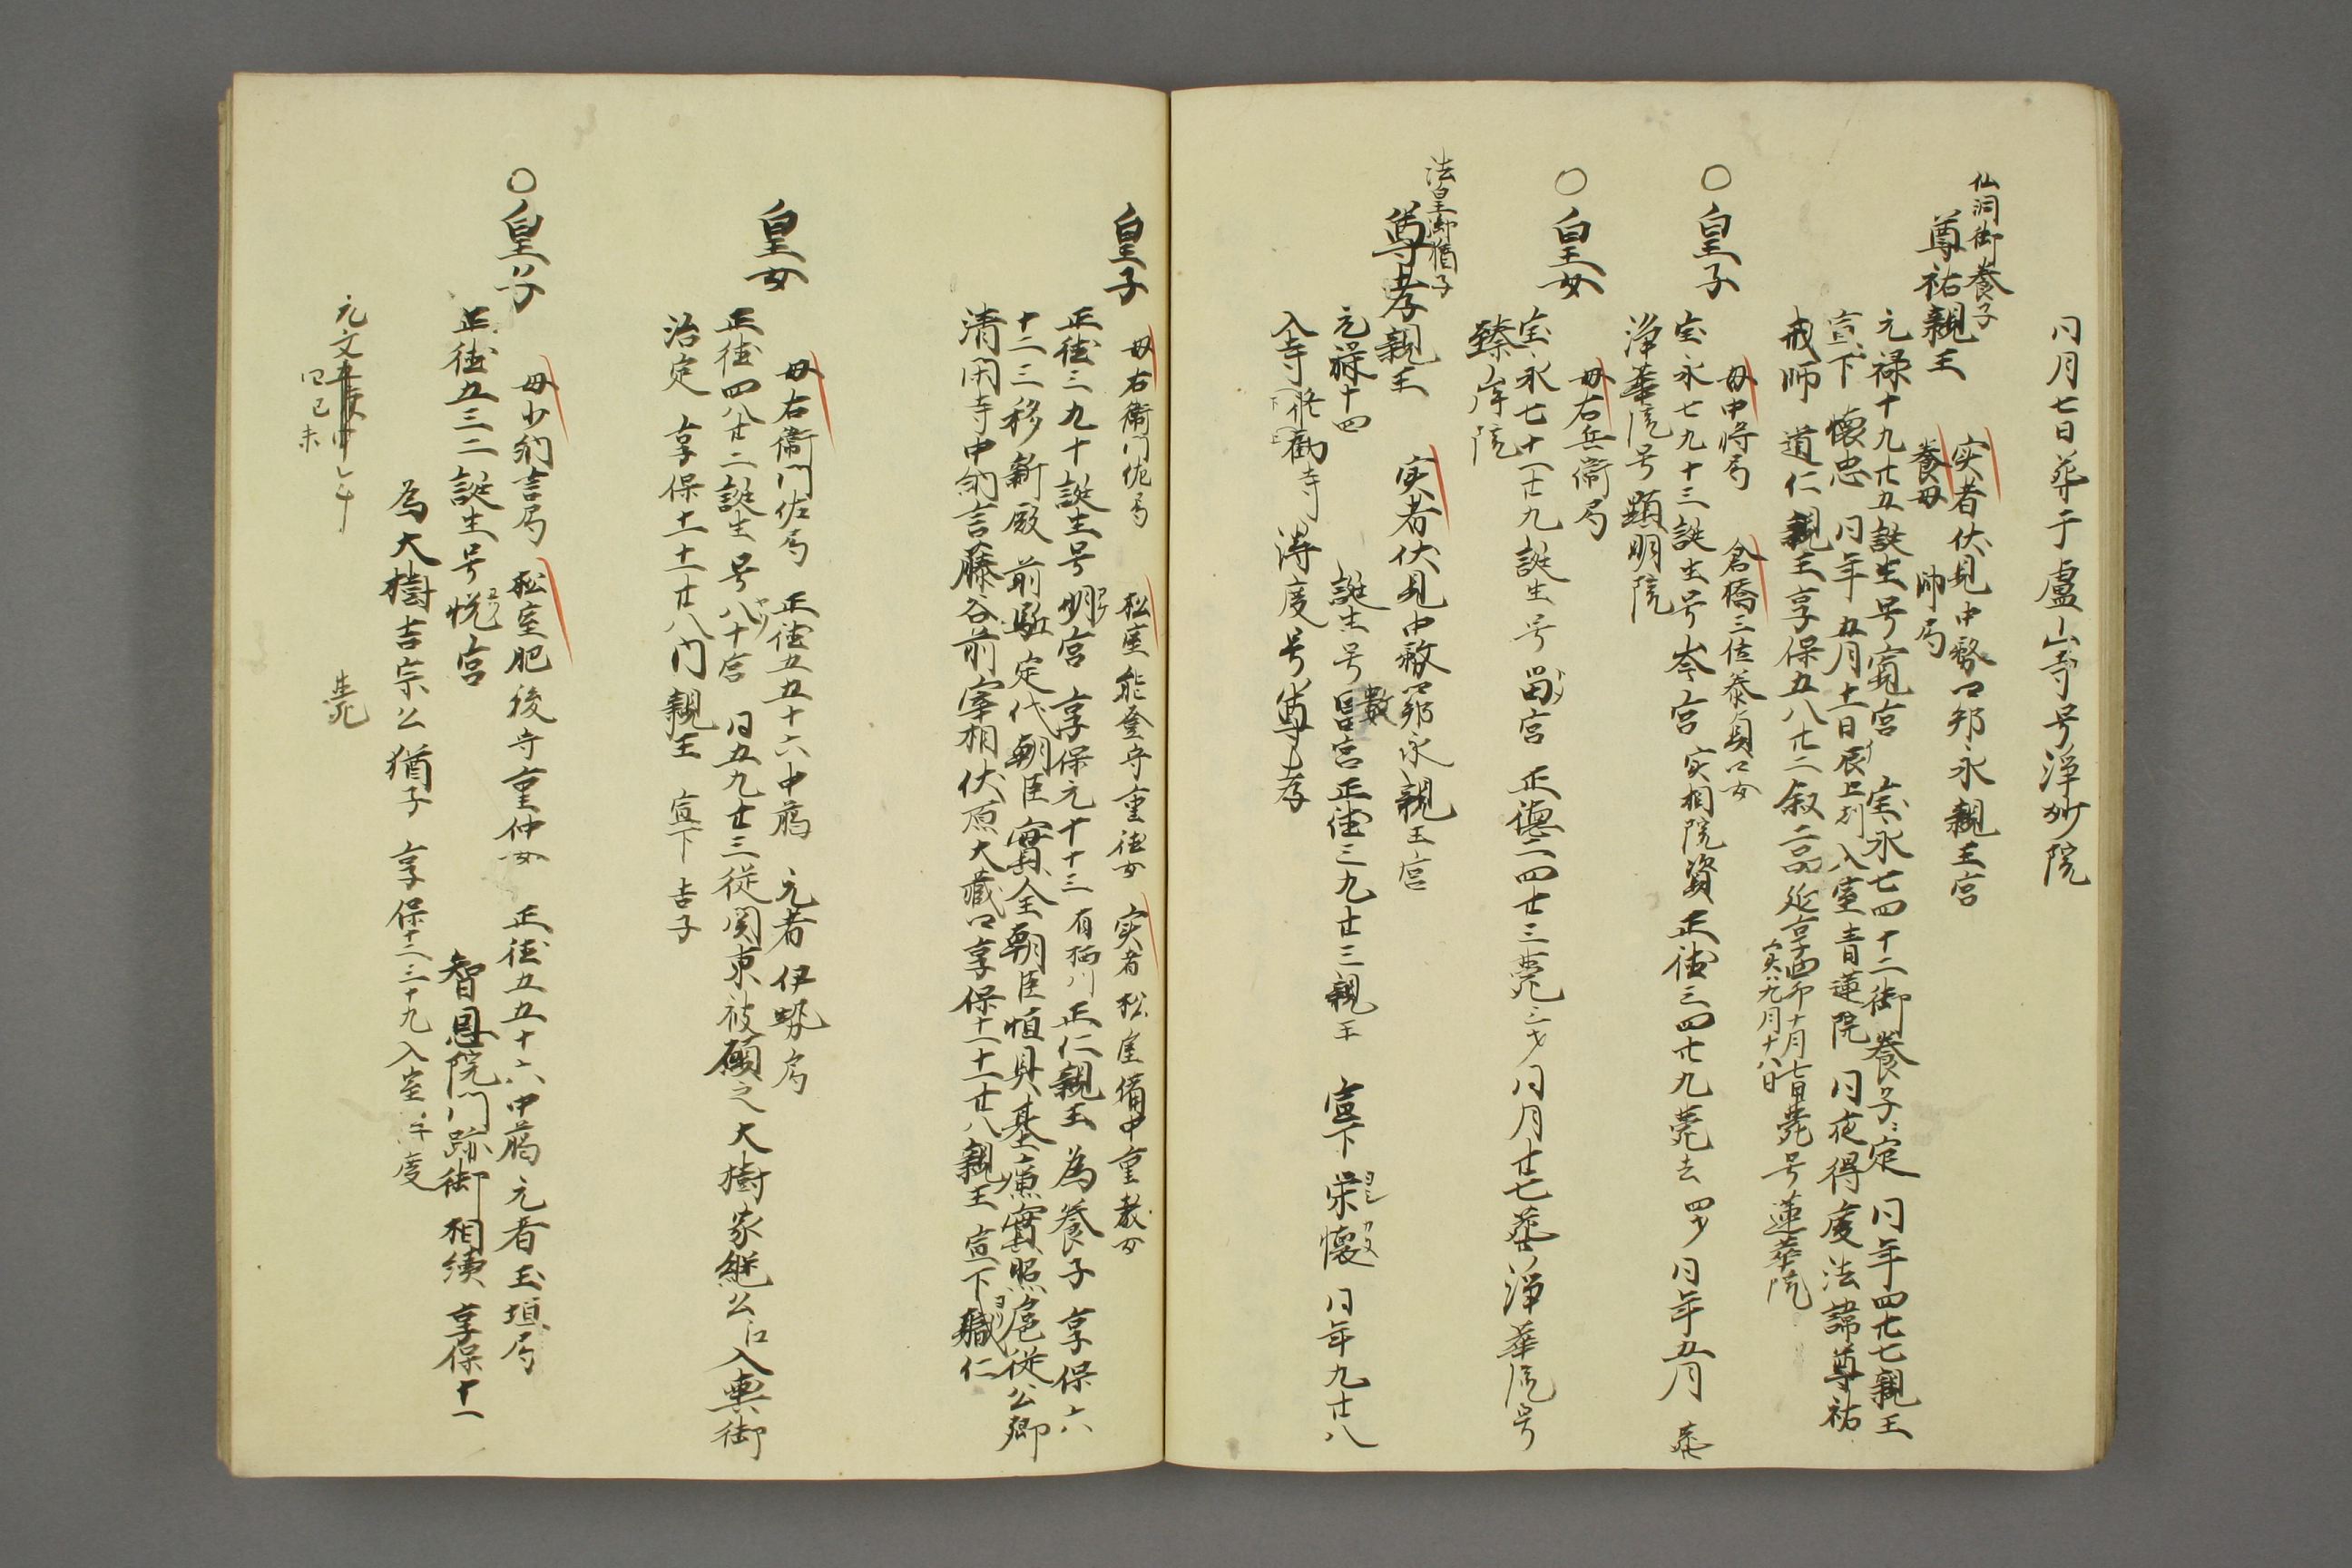 同月七日葬于盧山寺号浄妙院
仙洞御養子
尊祐親王
実者伏見中務卿邦永親王宮
養母 帥局
元禄十九廿五誕生号寛宮 宝永七四十二御養子定 同年四廿七親王
宣下 懐忠 同年五月十一日辰上刻入室青蓮院 同夜得度法諱尊祐
戒師 道仁親王享保五八廿二叙二品延享四卯十月七日薨号蓮華院
実九月十八日
○皇子
母中将局 倉橋三位泰貞卿女
宝永七九十三誕生号岑宮 実相院資正徳三四廿九薨去 四才 同年五月 葬
浄華院号顕明院
○皇女
母右兵衛局
宝永七十一廿九誕生号留宮 正徳二四廿三薨三才同月廿七葬浄華院号
臻岸院
法皇御猶子
尊孝親王
実者伏見中務卿邦永親王宮
元禄十四 誕生号数宮正徳三九廿三親王 宣下 栄懐 同年九廿八
入寺 勧修寺 得度号尊孝
皇子
母右衛門佐局 松室能登守重徳女 実者松尾備中重教女
正徳三九十誕生号明宮 享保元十十三有栖川正仁親王為養子 享保六
十二三移新殿 前駈定代朝臣實全朝臣恒具基廉實照扈従公卿
清閑寺中納言藤谷前宰相伏原大蔵卿享保十一十一廿八親王宣下職仁
皇女
母右衛門佐局 正徳五五十六中﨟 元者伊勢局
正徳四八廿二誕生号八十宮 同五九廿三従関東被願之大樹家継公江入輿御
治定 享保十一十一廿八内親王 宣下 吉子
○皇子
母少納言局 松室肥後守重仲女 正徳五五十六中﨟元者玉垣局
正徳五三二誕生号悦宮 智恩院門跡御相続 享保十一
為大樹吉宗公猶子 享保十二三十九入室 得度
元文
四己未 薨